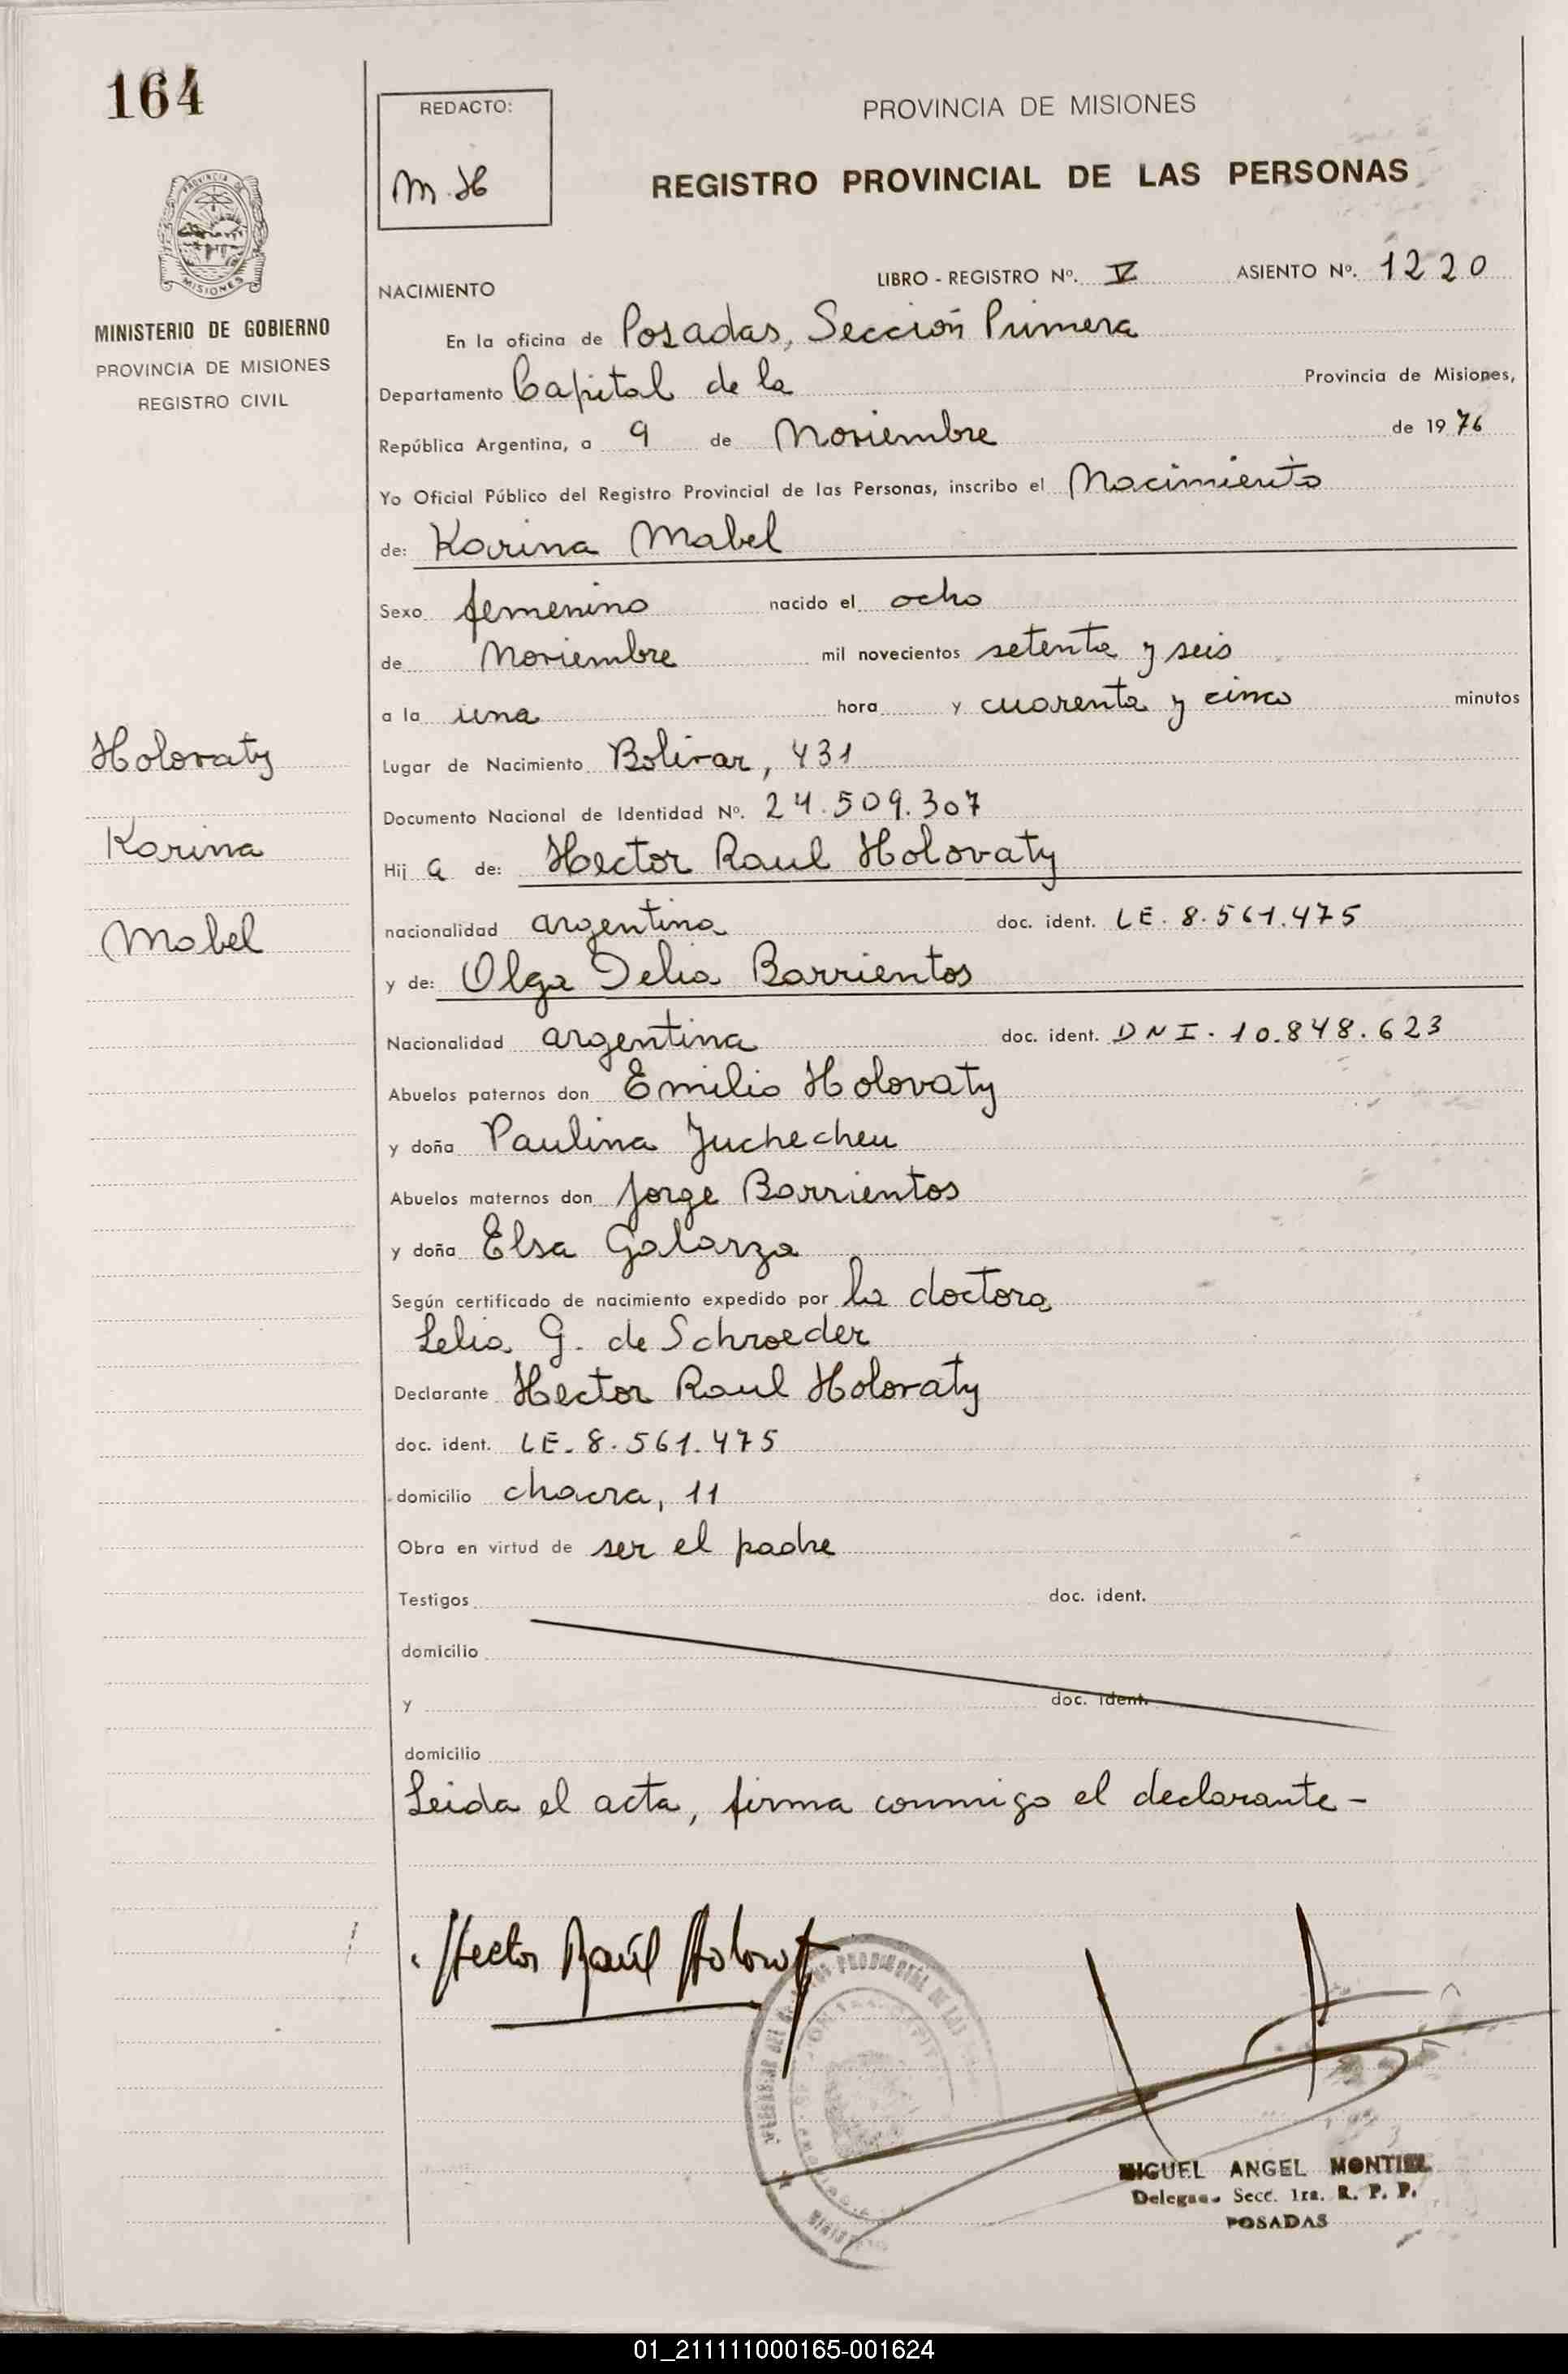 164
REDACTO:
M.H
PROVINCIA DE MISIONES
REGISTRO PROVINCIAL DE LAS PERSONAS
PROVINCIA DE
MISIONES
MINISTERIO DE GOBIERNO
PROVINCIA DE MISIONES
REGISTRO CIVIL
NACIMIENTO LIBRO - REGISTRO Nº. V ASIENTO Nº. 1220
En la oficina de Posadas, Sección Primera
Departamento Capital de la Provincia de Misiones,
República Argentina, a 9 de Noviembre de 1976
Yo Oficial Público del Registro Provincial de las Personas, inscribo el Nacimiento
de: Karina Mabel
Sexo femenino nacido el ocho
de Noviembre mil novecientos setenta y seis
a la una hora y cuarenta y cinco minutos
Holovaty
Karina
Mabel
Lugar de Nacimiento Bolivar, 431
Documento Nacional de Identidad Nº. 24.509.307
Hij a de: Hector Raul Holovaty
nacionalidad argentina doc. ident. LE. 8.561.475
y de: Olga Delia Barrientos
Nacionalidad argentina doc. ident. DNI. 10.848.623
Abuelos paternos don Emilio Holovaty
y doña Paulina Juchecheu
Abuelos maternos don Jorge Barrientos
y doña Elsa Galarza
Según certificado de nacimiento expedido por la doctora
Lelia G. de Schroeder
Declarante Hector Raul Holovaty
doc. ident. LE. 8.561.475
domicilio chacra, 11
Obra en virtud de ser el padre
Testigos doc. ident.
domicilio
y doc. ident.
domicilio
Leida el acta, firma conmigo el declarante-
Hector Raúl Holovaty
MIGUEL ANGEL MONTIEL
Secc. 1ra. R. P. P.
POSADAS
01_211111000165-001624